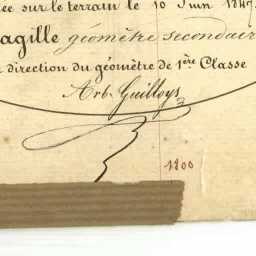 ée sur le terrain le 10 Juin 1847
agille géomètre secondair
direction du géomètre de 1ère Classe
Arb. Guilloys
1800